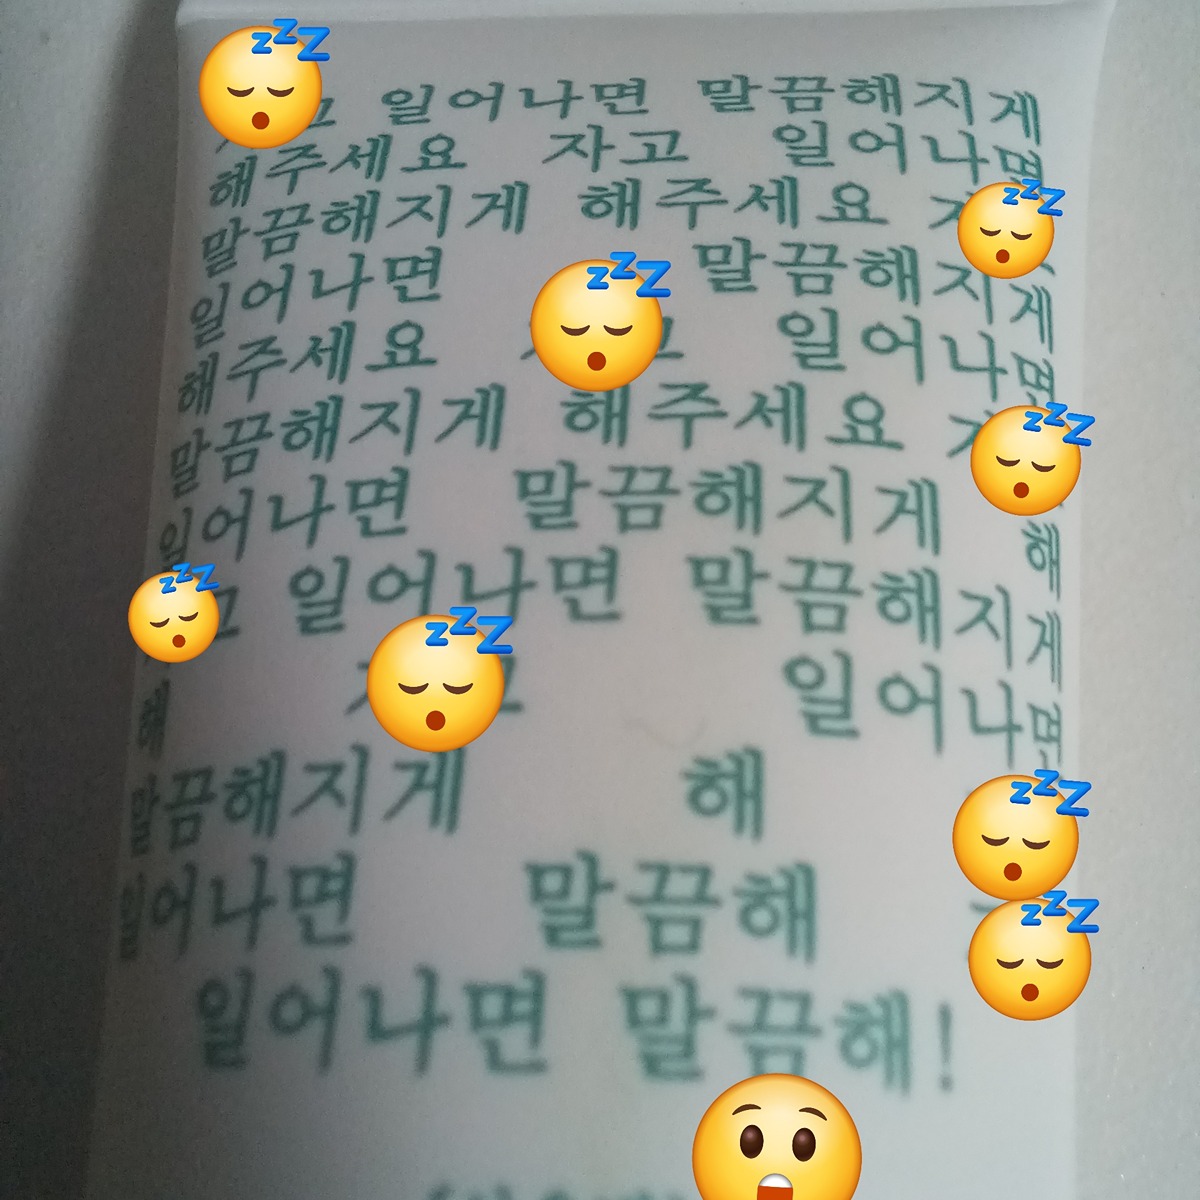 일어나면 말끔해지게
해주세요 자고 일어나면
말끔해지게 해주세요
일어나면 말끔해지게
해주세요 일어나면
말끔해지게 해주세요
일어나면 말끔해지게 해
일어나면 말끔해지게
해 일어나면
말끔해지게 해
일어나면 말끔해
일어나면 말끔해!